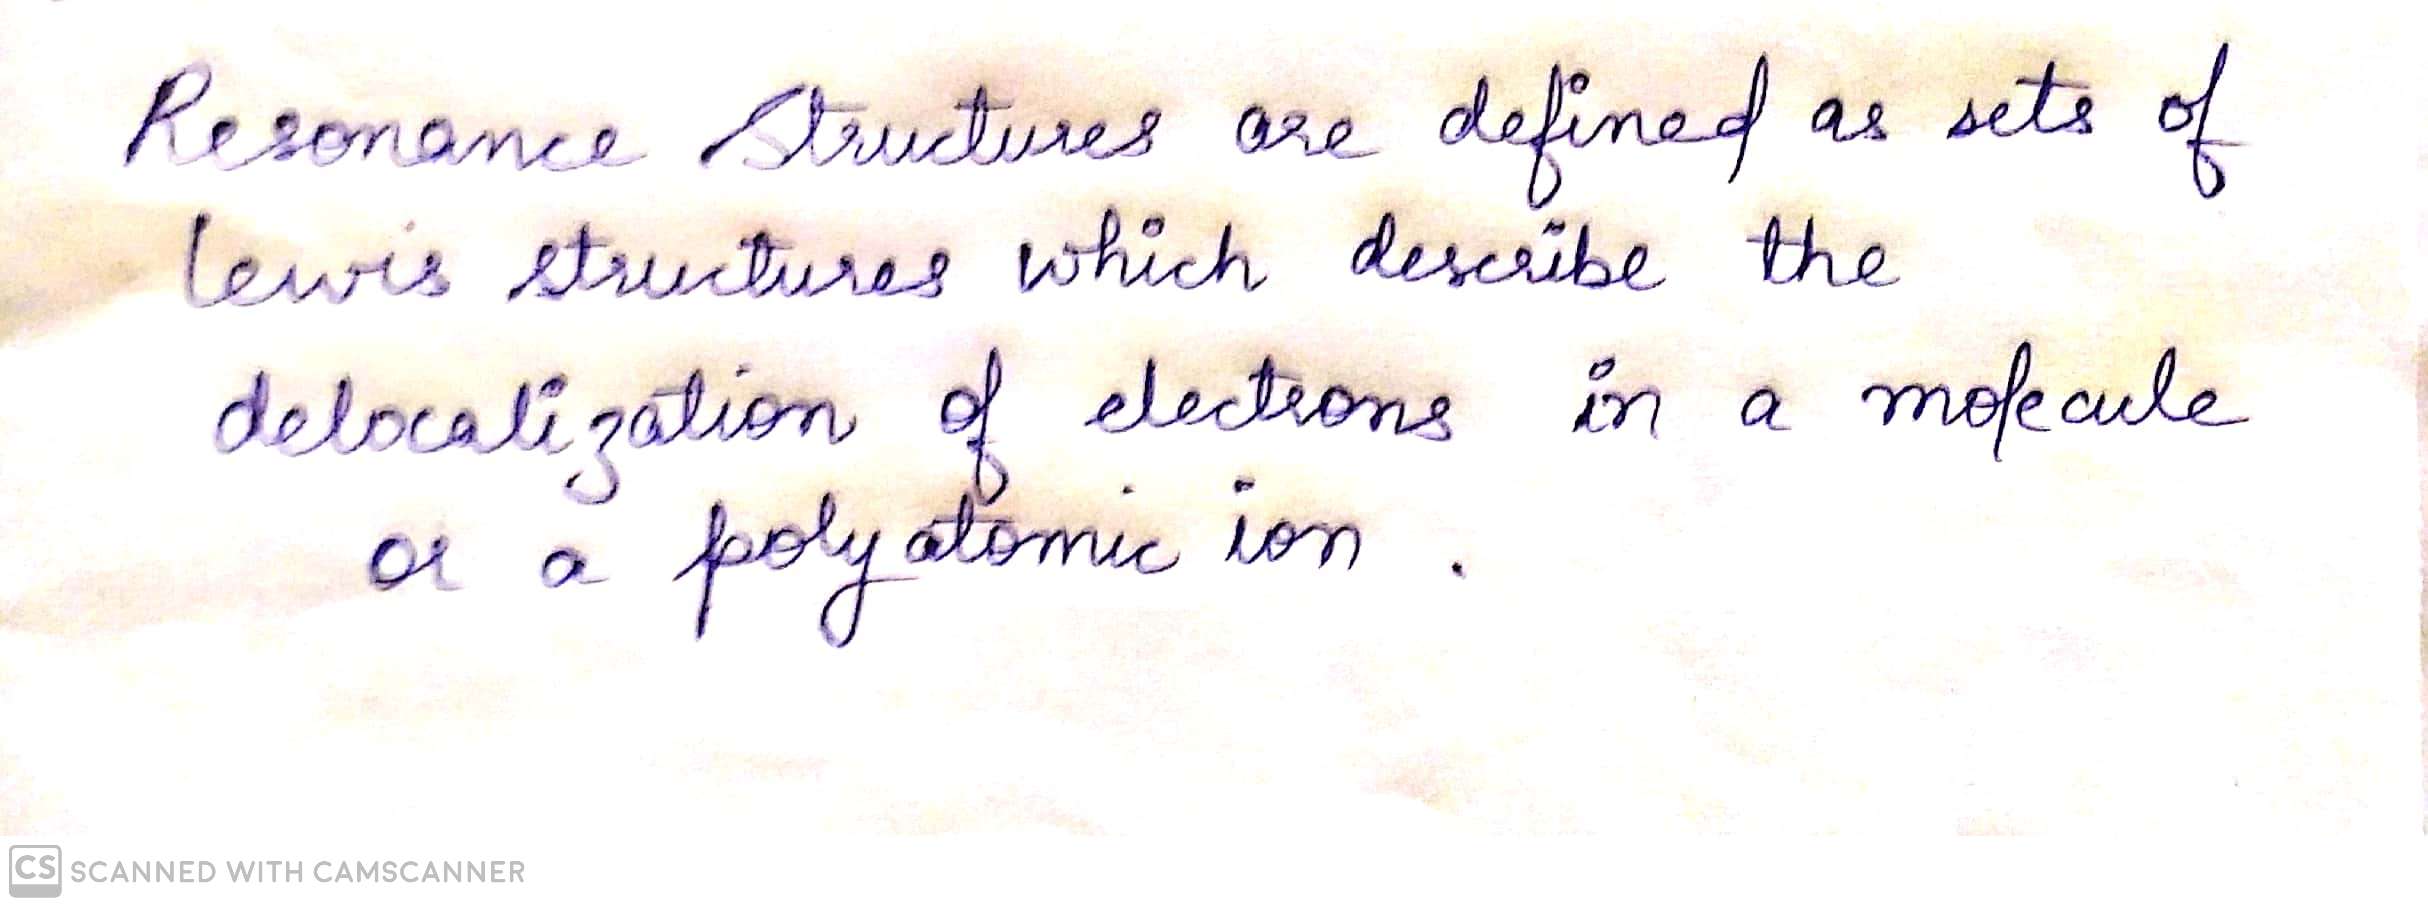 Resonance Structures are defined as sets of
Lewis structures which describe the
delocalization of electrons in a molecule
or a polyatomic ion .
CS SCANNED WITH CAMSCANNER